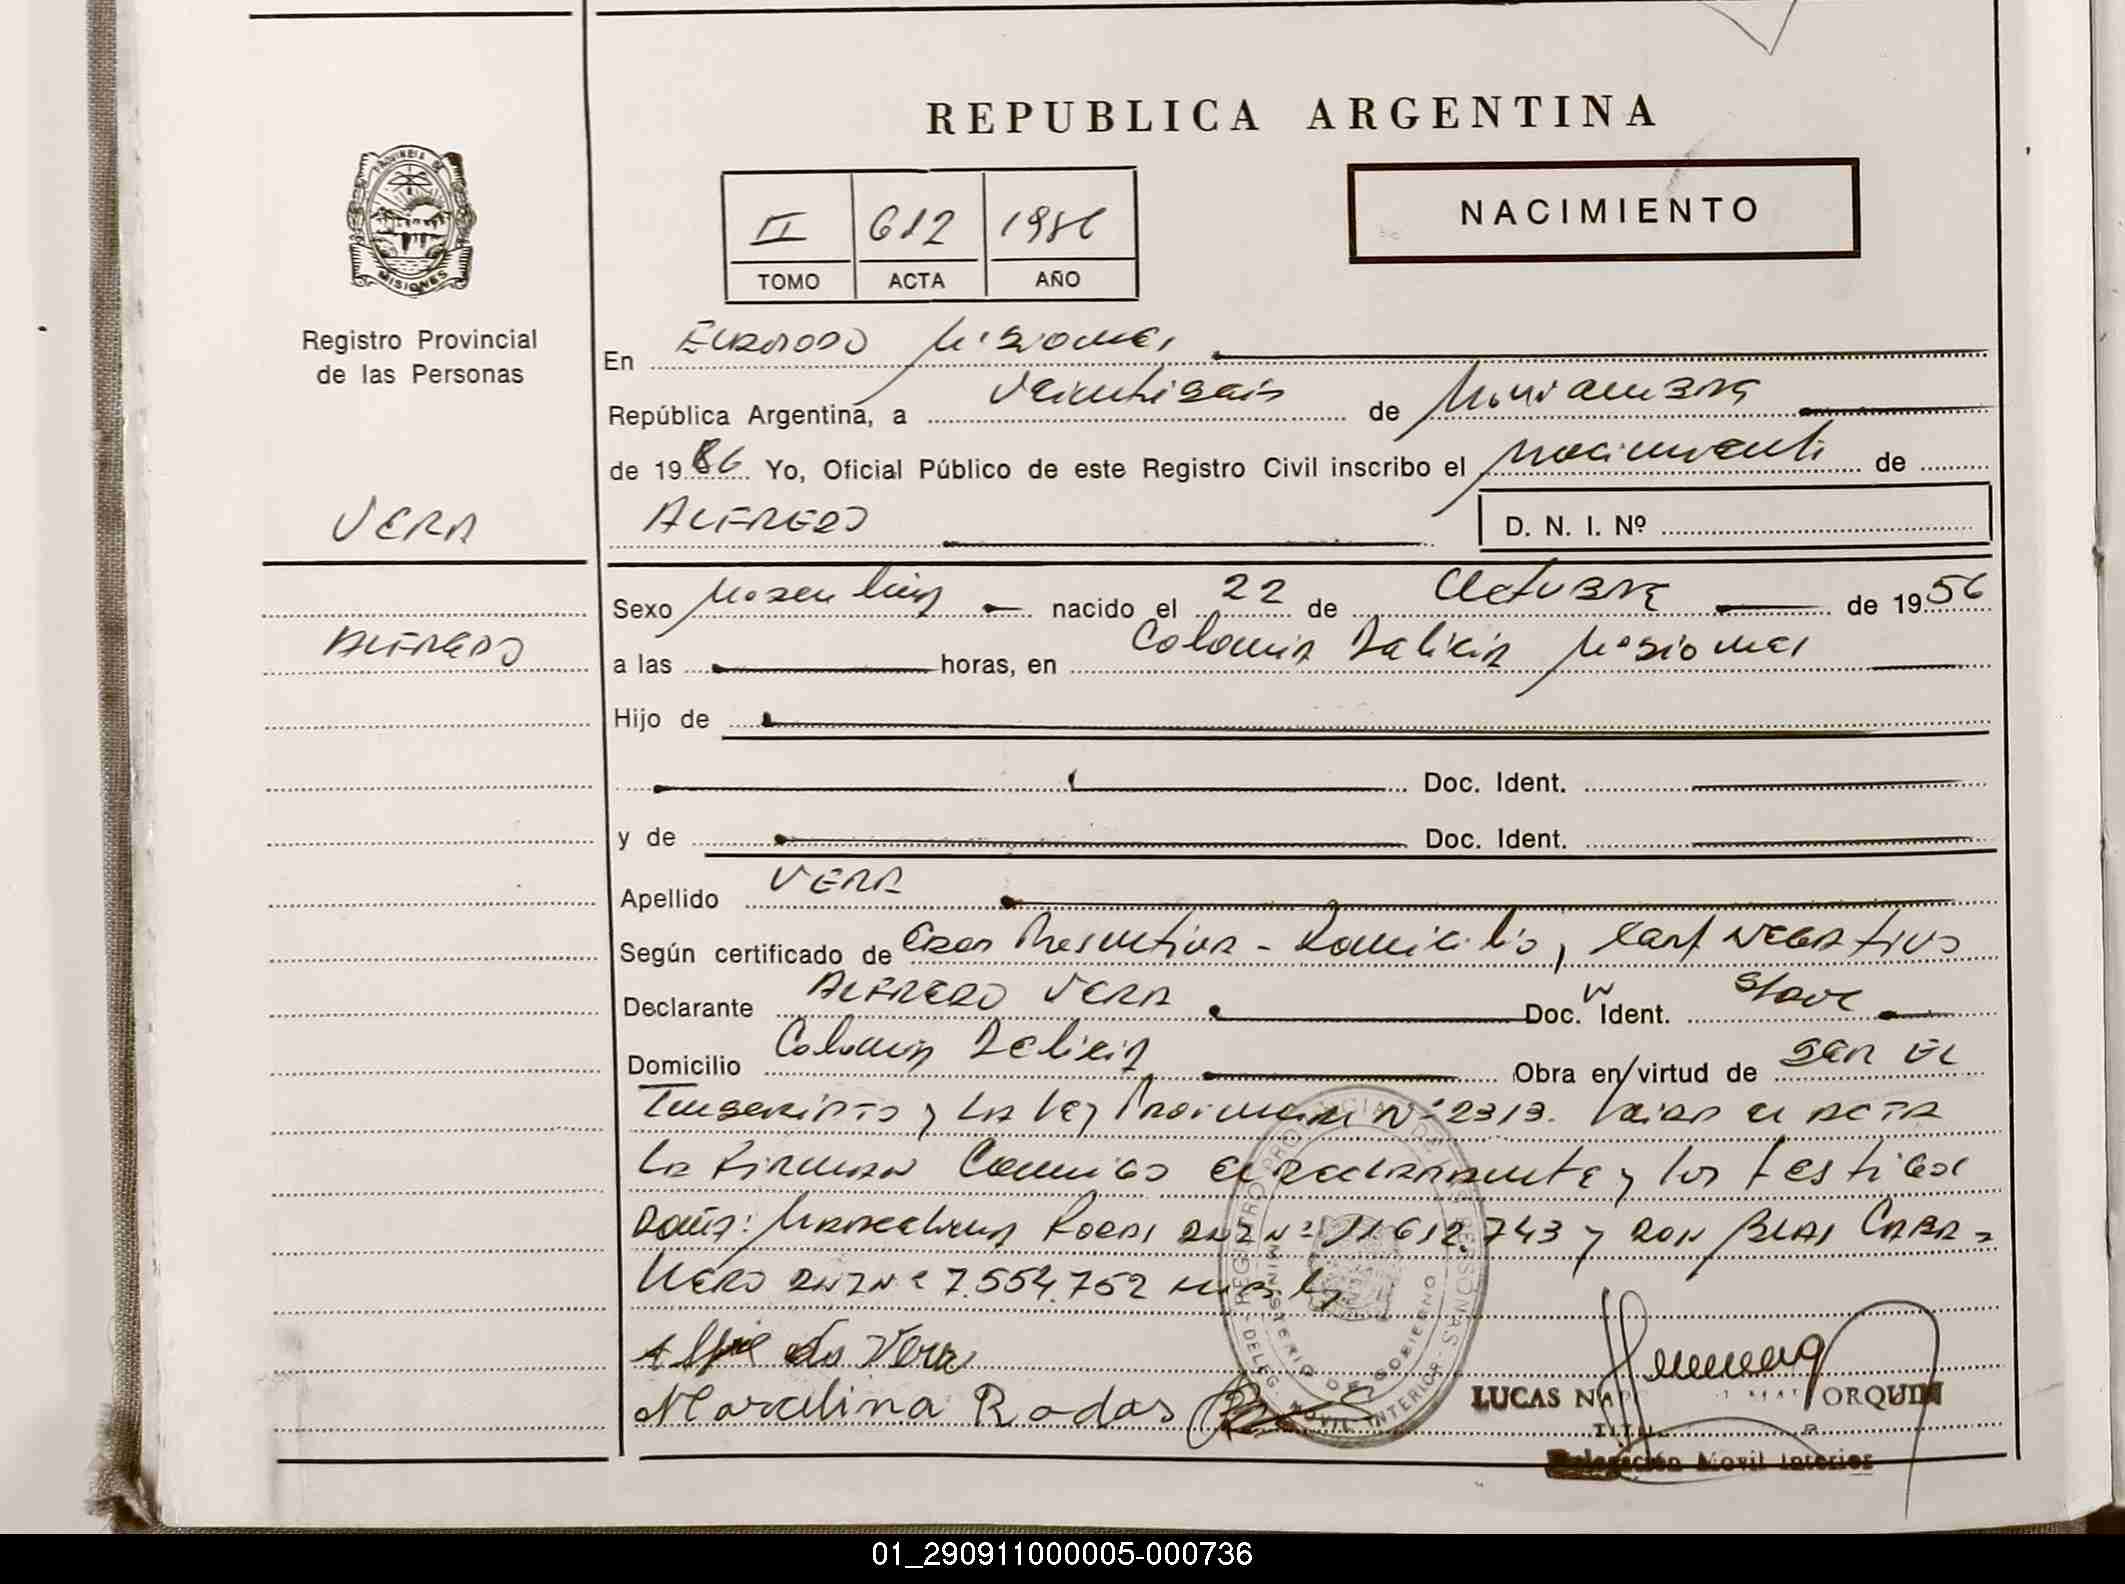 REPUBLICA ARGENTINA
NACIMIENTO
II 612 1986
TOMO ACTA AÑO
PROVINCIA DE
MISIONES
Registro Provincial
de las Personas
En ELDORADO Misiones
República Argentina, a Veintiseis de Noviembre
de 1986 Yo, Oficial Público de este Registro Civil inscribo el nacimiento de
VERA
ALFREDO
D. N. I. Nº
Sexo Masculino nacido el 22 de Octubre de 1956
ALFREDO
a las horas, en Colonia Delicia Misiones
Hijo de
Doc. Ident.
y de Doc. Ident.
Apellido VERA
Según certificado de Edad Presuntiva - Domicilio, Cert NEGATIVO
Declarante ALFREDO VERA Doc. Ident.
Domicilio Colonia Delicia Obra en virtud de SER EL
Inscripto y LA Ley Provincial Nº 2313. Leida el ACTA
La Firman Conmigo el declarante y los testigos
Doña: Marcelina Rodas DNI Nº 11.612.743 y DON BLAS CABA-
LLERO DNI Nº 7.554.752
Alfredo Vera
Marcelina Rodas
REGISTRO PROVINCIAL DE LAS PERSONAS
MINISTERIO DE GOBIERNO
DELEG. MOVIL INTERIOR
LUCAS ORQUIN
Delegación Movil Interior
01_290911000005-000736